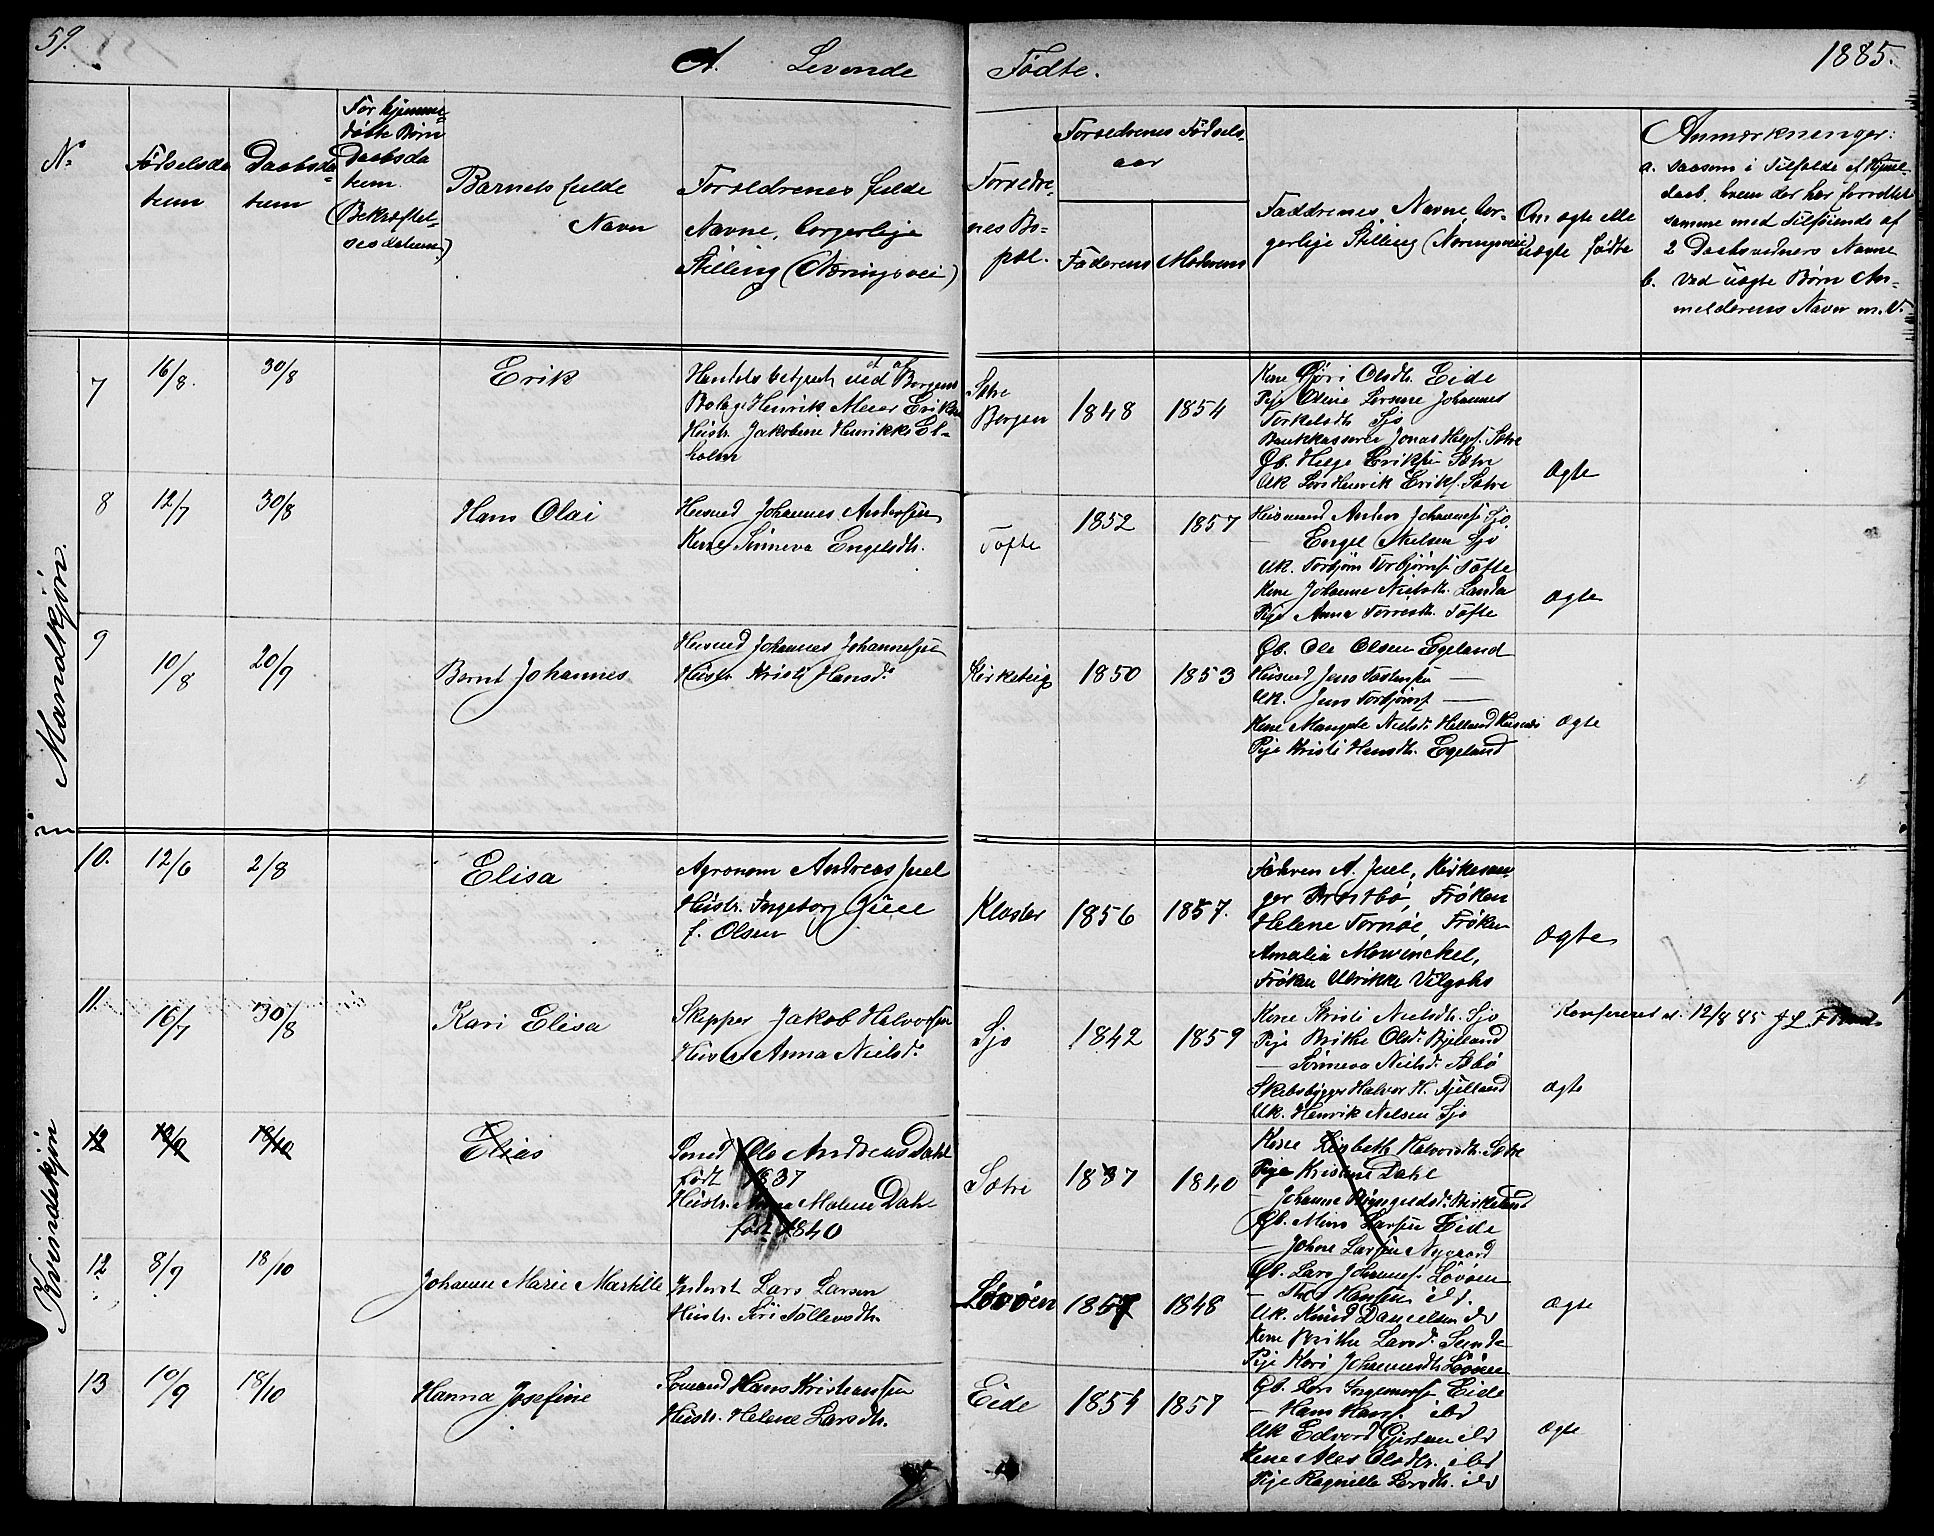 59.
A. Levende Fødte. 1885.
No
Fødselsda
tum
Daabsda=
tum
For hjemme=
døbte Børn
Daabsda
tum.
(Bekræftel-
sesdatum)
Barnets fulde
Navn
Forældrenes fulde
Navne, borgerlige
Stilling (Næringsvei)
Forældre-
nes Bo=
pæl.
Forældrenes Fødsels
aar
Faderens Moderens
Faddrenes Navne, bor-
gerlige Stilling (Næringsvei)
Om ægte eller
uægte fødte
Anmærkninger:
a. saasom i Tilfælde af Hjemme-
daab, hvem der har forrettet
samme med Tilføiende af
2 Daabsvidners Navne
b. ved uægte Børn An-
melderens Navn m.V.
Mandkjøn.
7 16/8. 30/8 Erik
Handelsbetjent ved et af Bergens
Bolag Henrik Meier Eriksen
Hustr. Jakobine Henrikke Ek-
holm
Sætre
Bergen
1848 1854
Kone Gjøri Olsdtr. Eide
Pige Oline Johannes
Torkelsdtr. Sjo
Bankkasserer Jonas Helgs. Sætre
Gb. Helge Eriksen Sætre
Uk. Lars Henrik Eriks. Sætre
Ægte
8 12/7 30/8 Hans Olai
Husmd Johannes Andersen
Kone Sünneva Engelsdtr.
Tofte
1852 1857
Husmand Anders Johannes. Sjo
— Engel Nielsen Sjo
Uk. Torbjørn Torbjørns. Tofte
Kone Johanne Nielsdtr. Landa
Pige Anna Torresdtr. Tofte
Ægte
9 10/8 20/9 Bernt Johannes
Husmd Johannes Johannessen
Hustr. Kristi Hansd.
Kirketeig
1850 1853
Gb. Ole Olsen Egeland
Husmd Jens Tostensen —
Uk. Jens Torbjørns. —
Kone Mangele Nielsd. Helland
Pige Kristi Hansdtr. Egeland
Ægte
Kvindekjøn
10. 12/6 2/8 Elisa
Agronom Andreas Juel
Hustr. Ingeborg Juel
f. Olsen
Kloster
1856 1857.
Faderen A. Juel, Kirkesan-
ger Frøken
Helene Tornøe, Frøken
Amalia Mowinckel,
Frøken Ulrikke
Ægte
11. 16/7 30/8 Kari Elisa
Skipper Jakob Halvorsen
Hustr. Anna Nielsd.
Sjo
1842 1859
Kone Kristi Nielsdtr. Sjo
Pige Brithe Olsd. Bjelland
— Sünneva Nielsd. Æbø
Skibsbygger Halvor H. Fjelland
Uk. Henrik Nielsen Sjo
Ægte
Konfereret d. 12/8 85
12 10/9 18/10 Elias
Smed Ole Andreas Dahl
født 1837
Hustr. Malene Dahl
født 1840
Sætre
1837 1840
Kone Lisbeth Halvorsdtr. Sætre
Pige Kristine Dahl
— Johanne
Gb. Larsen Eide
— Johne Larsen Nygaard
12 8/9 18/10 Johanne Marie Martille
Inderst Lars Larsen
Hustr. Siri Tollevsdtr.
Løvøen
1857 1848
Gb. Lars Johannes. Løvøen
— Hansen ibd.
Uk. Knud Danielsen ibd
Kone Brithe Larsd. Sunde
Pige Kari Johannesdtr. Løvøen
Ægte
13 10/9 18/10 Hanna Josefine
Sømand Hans Kristiansen
Hustr. Helene Larsdtr.
Eide
1854 1857
Gb. Lars Ingemars. Eide
— Hans Hans. ibd
Uk Edvard ibd
Kone Ales Olsdtr. ibd
Pige Ragnilde Larsdtr. ibd
Ægte